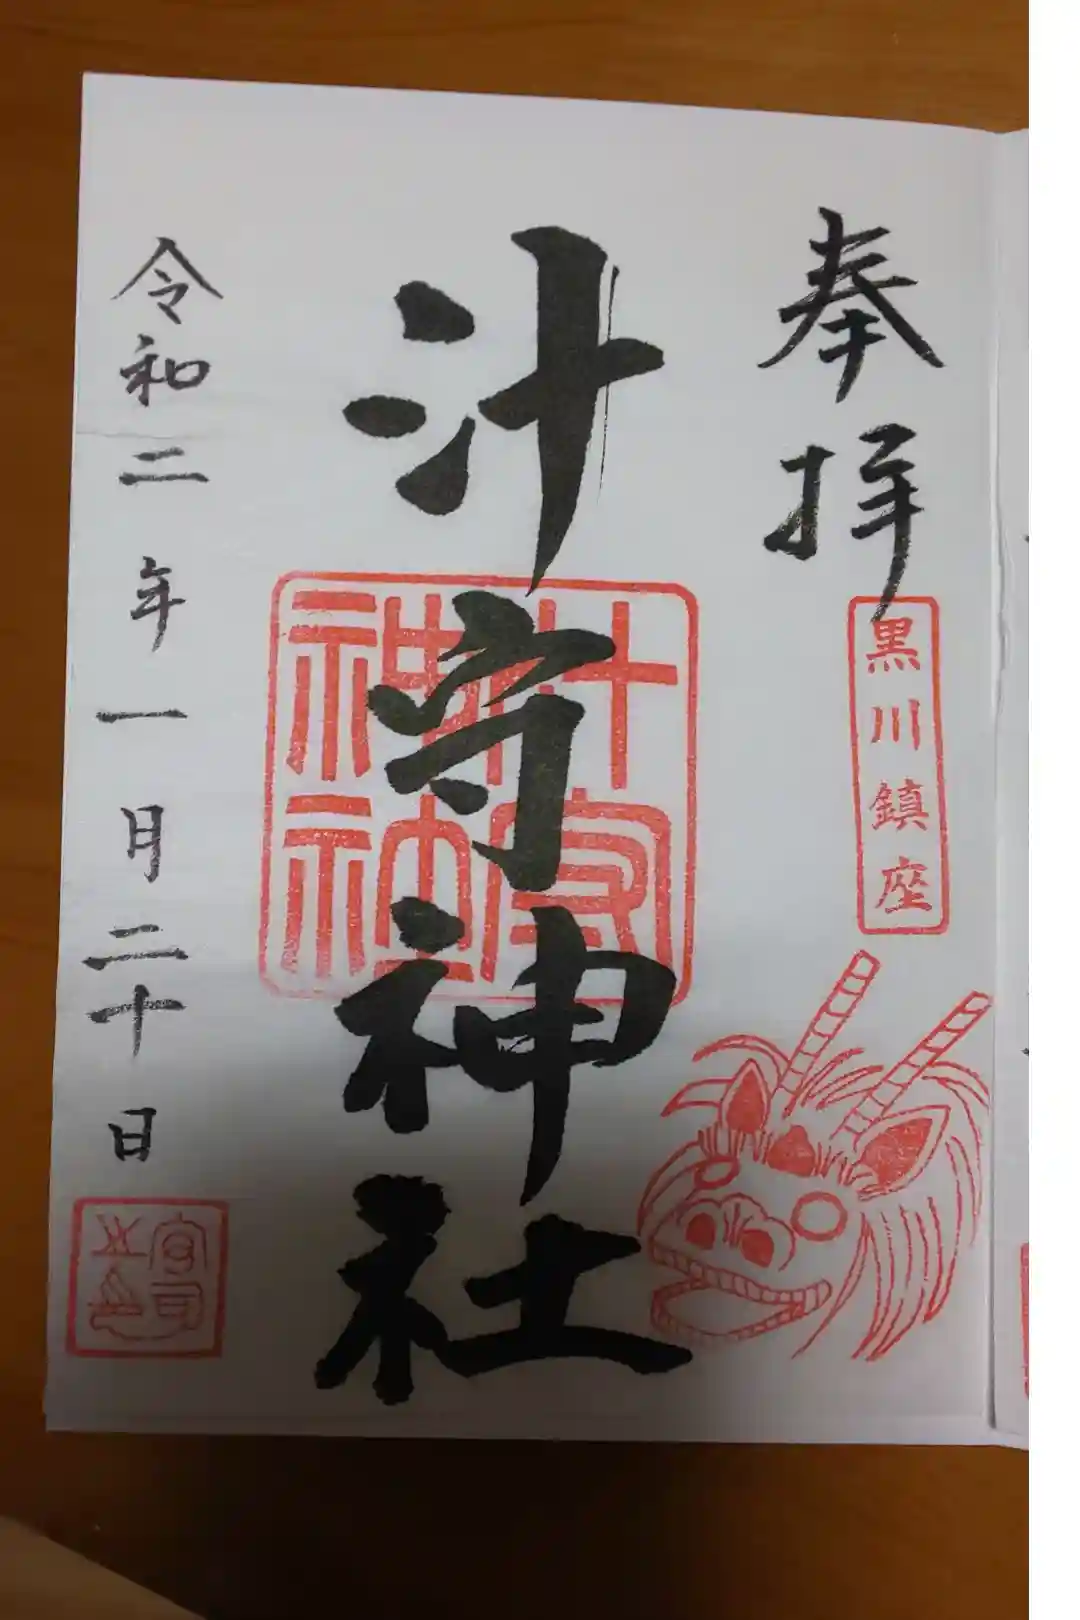 奉拝
黒川鎮座
汁守神社
令和二年一月二十日
宮司之印